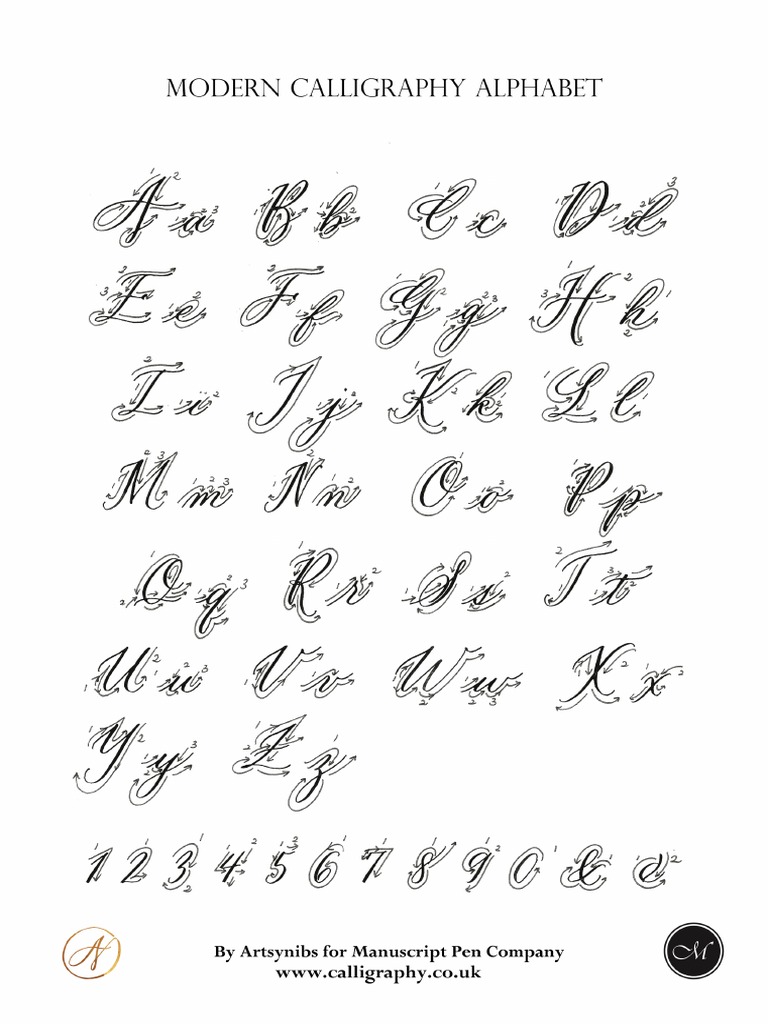 MODERN CALLIGRAPHY ALPHABET
A a B b C c D d
E e F f G g H h
I i J j K k L l
M m N n O o P p
Q q R r S s T t
U u V v W w X x
Y y Z z
1 2 3 4 5 6 7 8 9 0 &
By Artsynibs for Manuscript Pen Company
www.calligraphy.co.uk
M